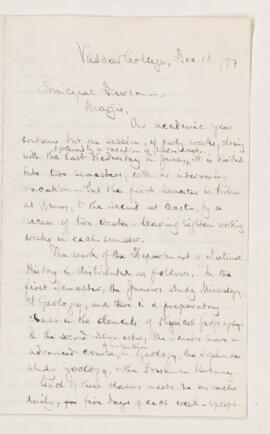 Vassar College, Dec. 18, /77
Principal Dawson
Dear Sir,
Our academic year
contains but one session, of forty weeks, closing
followed by a vacation of twelve weeks.
with the last Wednesday in June, it is divided
into two semesters, with no intervening
vacation. But the first semester is broken
at Xmas, & the second at Easter, by a
recess of two weeks - leaving eighteen working
weeks in each semester.
The work of the department of Natural
History is distributed as follows. In the
first Semester, the Juniors study Mineralogy
& Geology, and there is a preparatory
class in the elements of Physical Geography.
In the second Semester, the Seniors have an
advanced course in Geology, the Sophomores
study Zoology, & the Freshmen Botany.
Each of these classes meets the instructor
daily, five days of each week - except